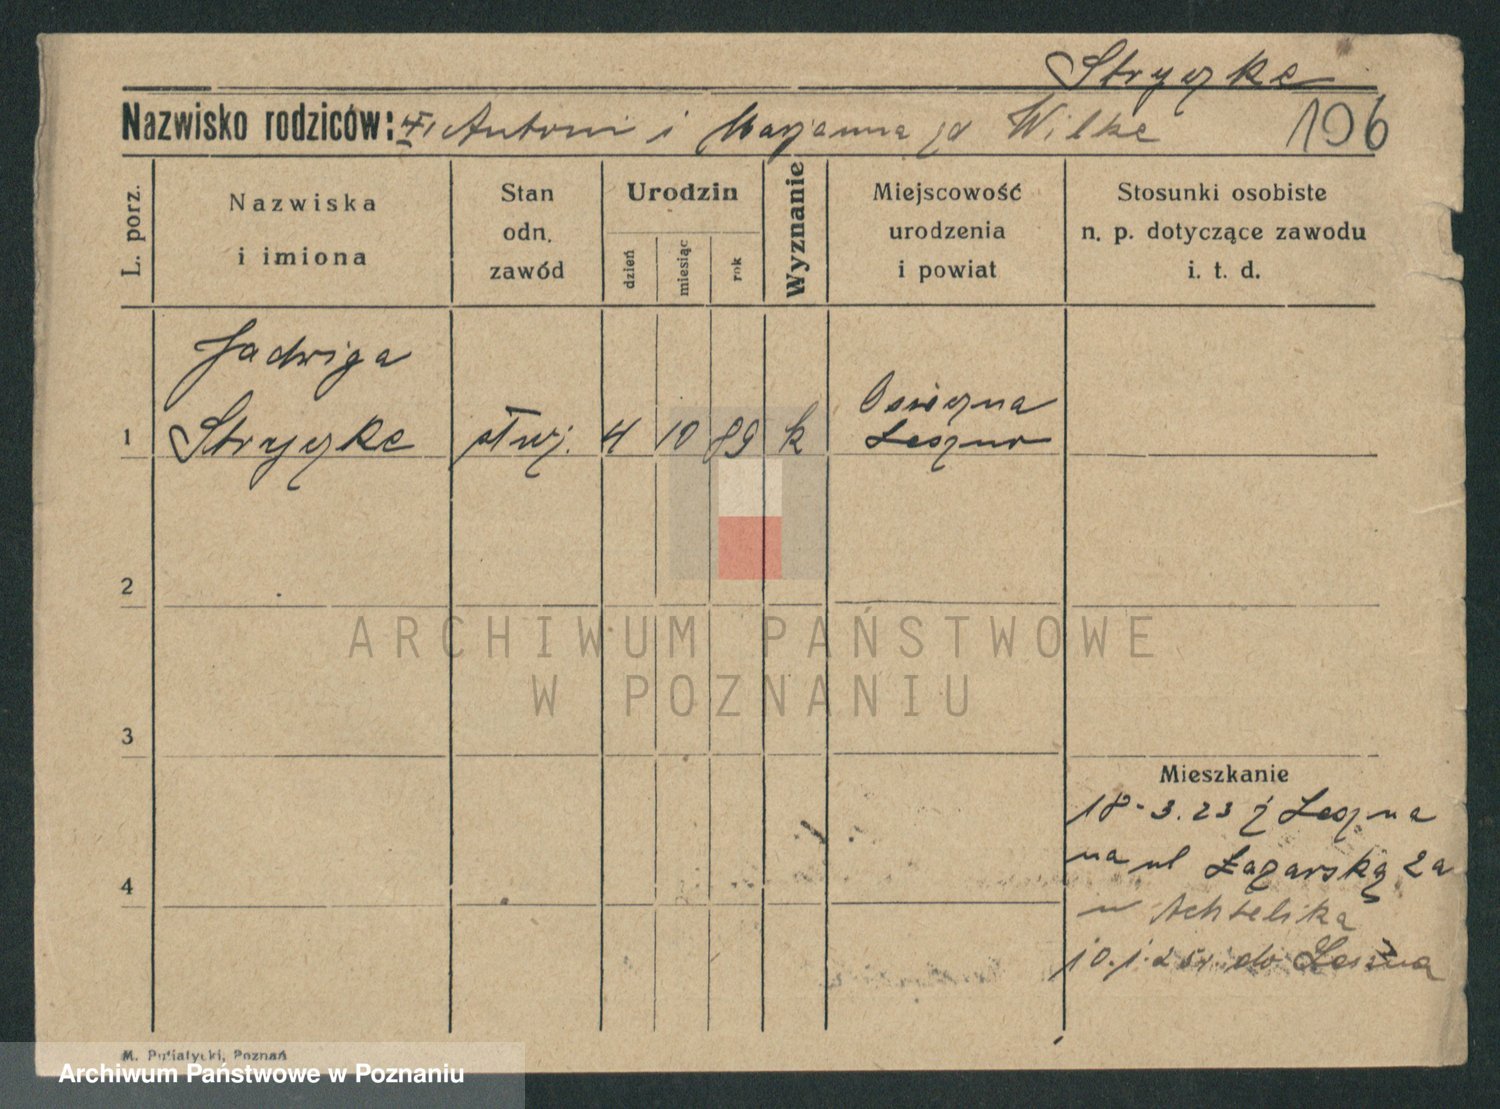 Stryczke
Nazwisko rodziców: Antoni i Marjanna zd Wilke 106
L. porz.
Nazwiska
i imiona
Stan
odn.
zawód
Urodzin
dzień
miesiąc
rok
Wyznanie
Miejscowość
urodzenia
i powiat
Stosunki osobiste
n. p. dotyczące zawodu
i. t. d.
Jadwiga
Osieczna
1 Stryczke służ. 4 10 89 k Leszno
2
ARCHIWUM PAŃSTWOWE
W POZNANIU
3
Mieszkanie
18-3.23 z Leszna
na ul Łazarską 2a
4
w Achtelika
10.1.25r. do Leszna
M. Putiatycki, Poznań
Archiwum Państwowe w Poznaniu